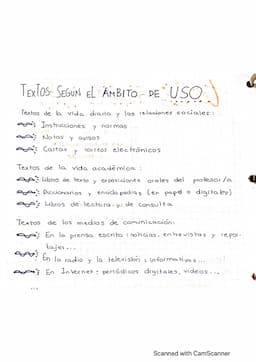 TEXTOS SEGÚN EL ÁMBITO DE USO
Textos de la vida diaria y las relaciones sociales:
Instrucciones y normas
Notas y avisos
Cartas y correos electrónicos
Textos de la vida académica:
Libros de texto y exposiciones orales del profesor/a
Diccionarios y enciclopedias (en papel o digitales)
Libros de lectura y de consulta
Textos de los medios de comunicación:
En la prensa escrita: noticias, entrevistas y repor-
tajes...
En la radio y la televisión: informativos...
En Internet: periódicos digitales, videos...
...
Scanned with CamScanner